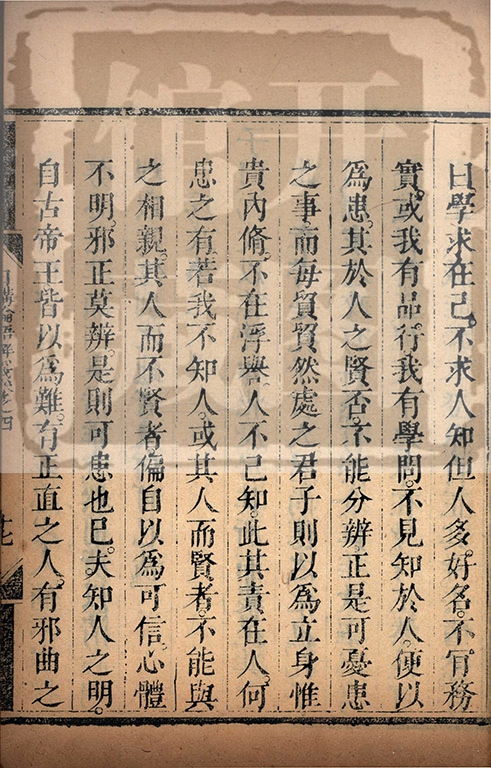 曰學求在己。不求人知但人多。好名。不肎務
實。或我有品。行我有學問。不見知於人。便以
爲患。其於人之賢否。不能分辨正是可憂患
之事。而每貿貿然處之君子則以爲立身惟
貴內脩。不在浮譽人不己知。此其責在人。何
患之有若我不知人。或其人而賢者。不能與
之相親。其人而不賢者偏自以爲可信。心體
不明。邪正莫辨。是則可患也已。夫知人之明。
自古帝王皆以爲難。有正直之人。有邪曲之
日講論語解義卷之四